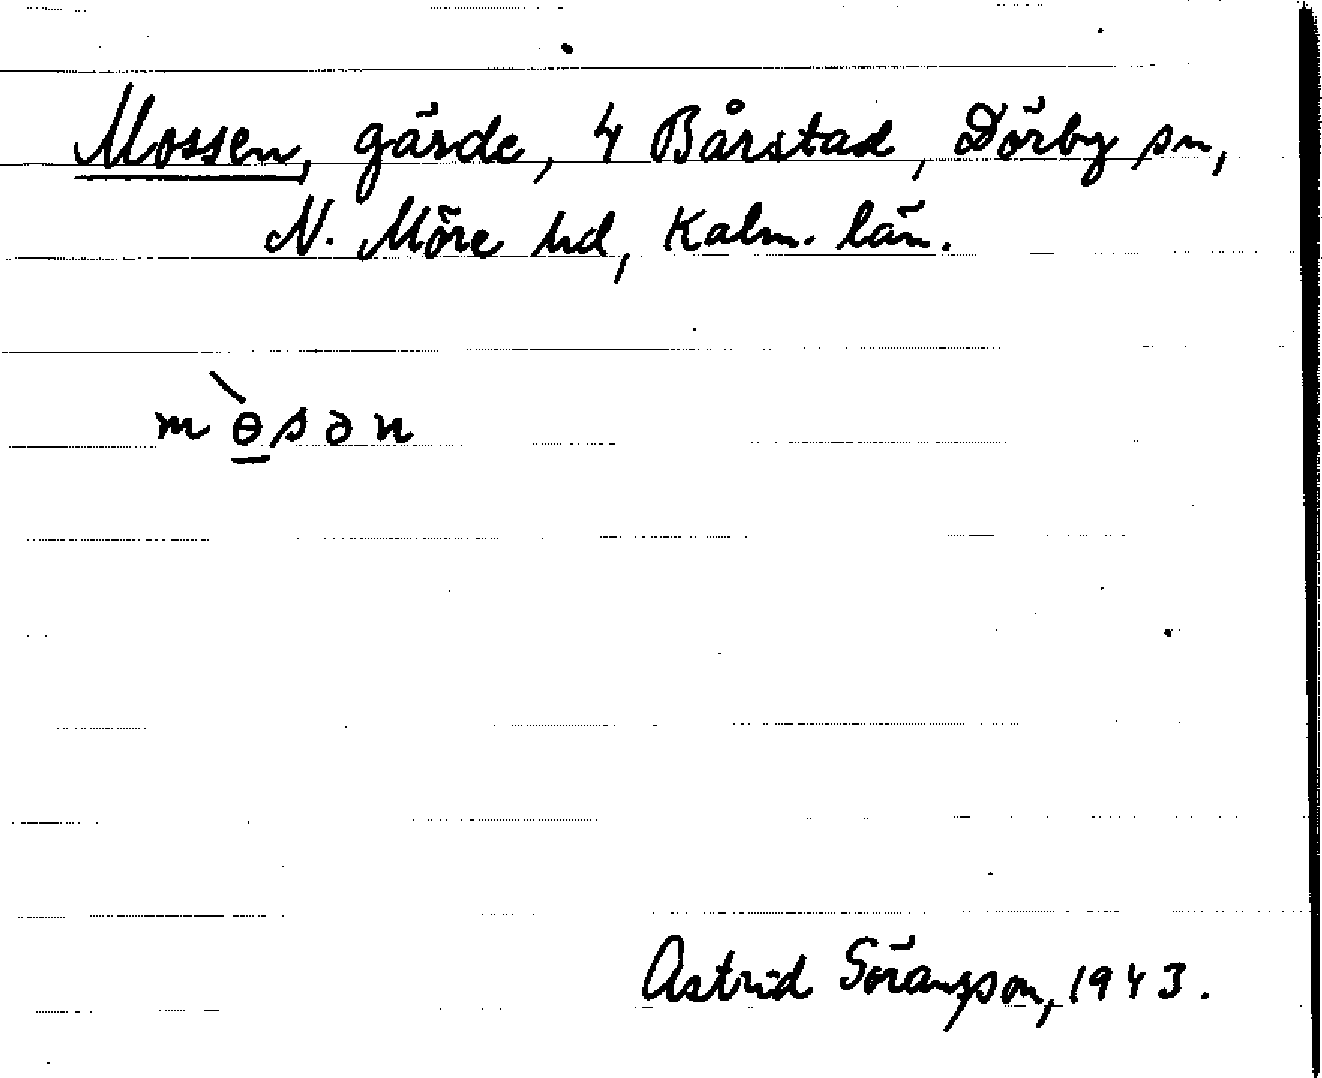 Mossen, gärde, 4 Bårstad, Dörby sn,
N. Möre hd, Kalm. län.
mɵ̱̀sən
Astrid Söransson, 1943.